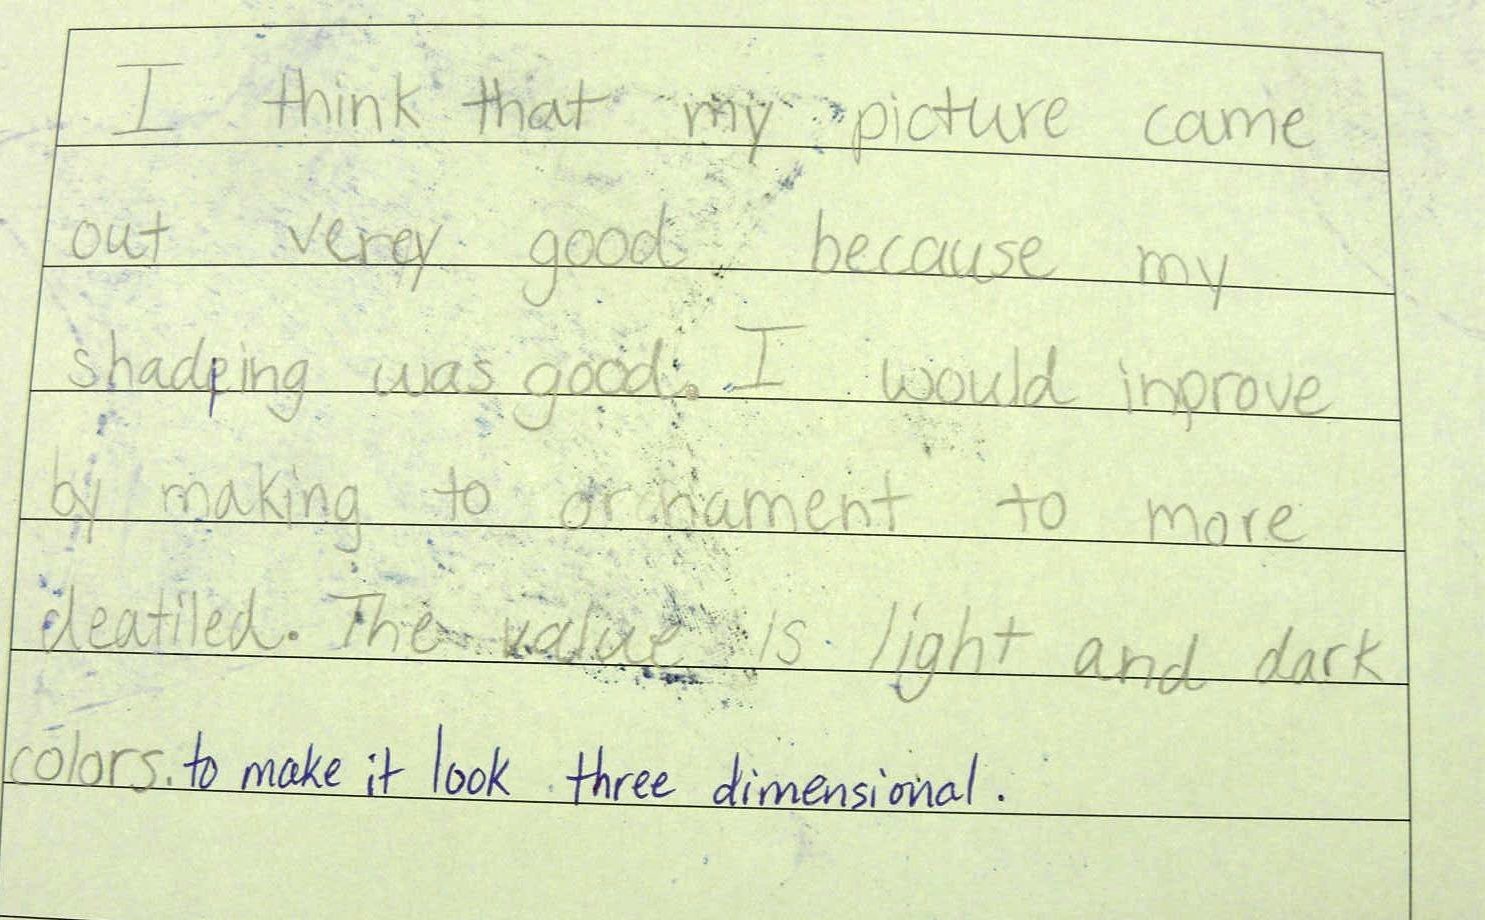 I think that my picture came
out verey good because my
shadeing was good. I would inprove
by making to ornament to more
deatiled. The value is light and dark
colors. to make it look three dimensional.